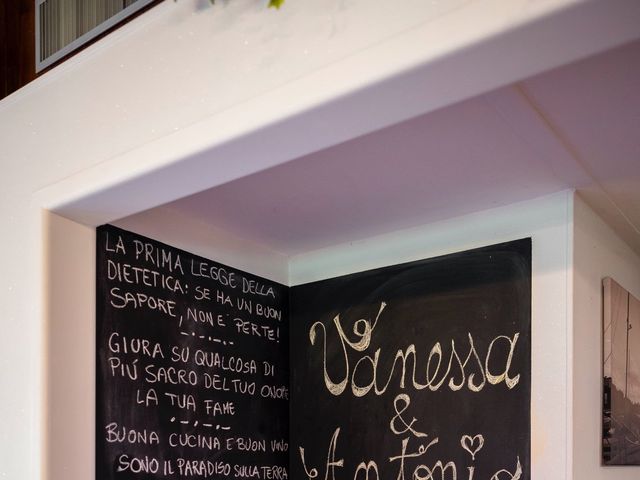 LA PRIMA LEGGE DELLA
DIETETICA: SE HA UN BUON
SAPORE, NON E' PER TE!
GIURA SU QUALCOSA DI
PIÚ SACRO DEL TUO ONORE
LA TUA FAME
BUONA CUCINA E BUON VINO
SONO IL PARADISO SULLA TERRA
Vanessa
&
Antonio